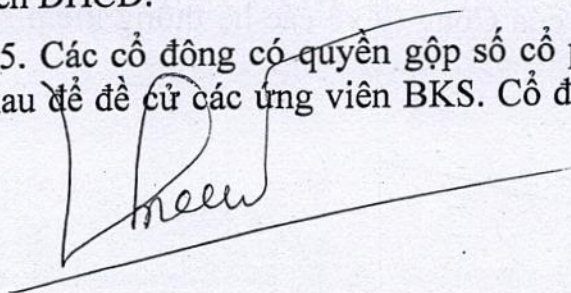 ĐHCĐ.
5. Các cổ đông có quyền gộp số cổ
để đề cử các ứng viên BKS. Cổ